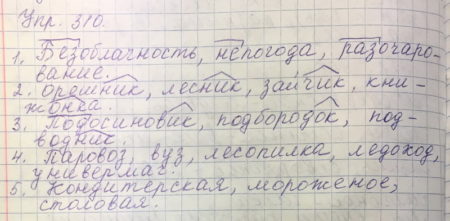 Упр. 310.
1. Безоблачность, непогода, разочаро-
вание.
2. орешник, лесник, зайчик, кни-
жонка.
3. Подосиновик, подбородок, под-
водник.
4. Паровоз, вуз, лесопилка, ледоход,
универмаг.
5. Кондитерская, мороженое,
столовая.